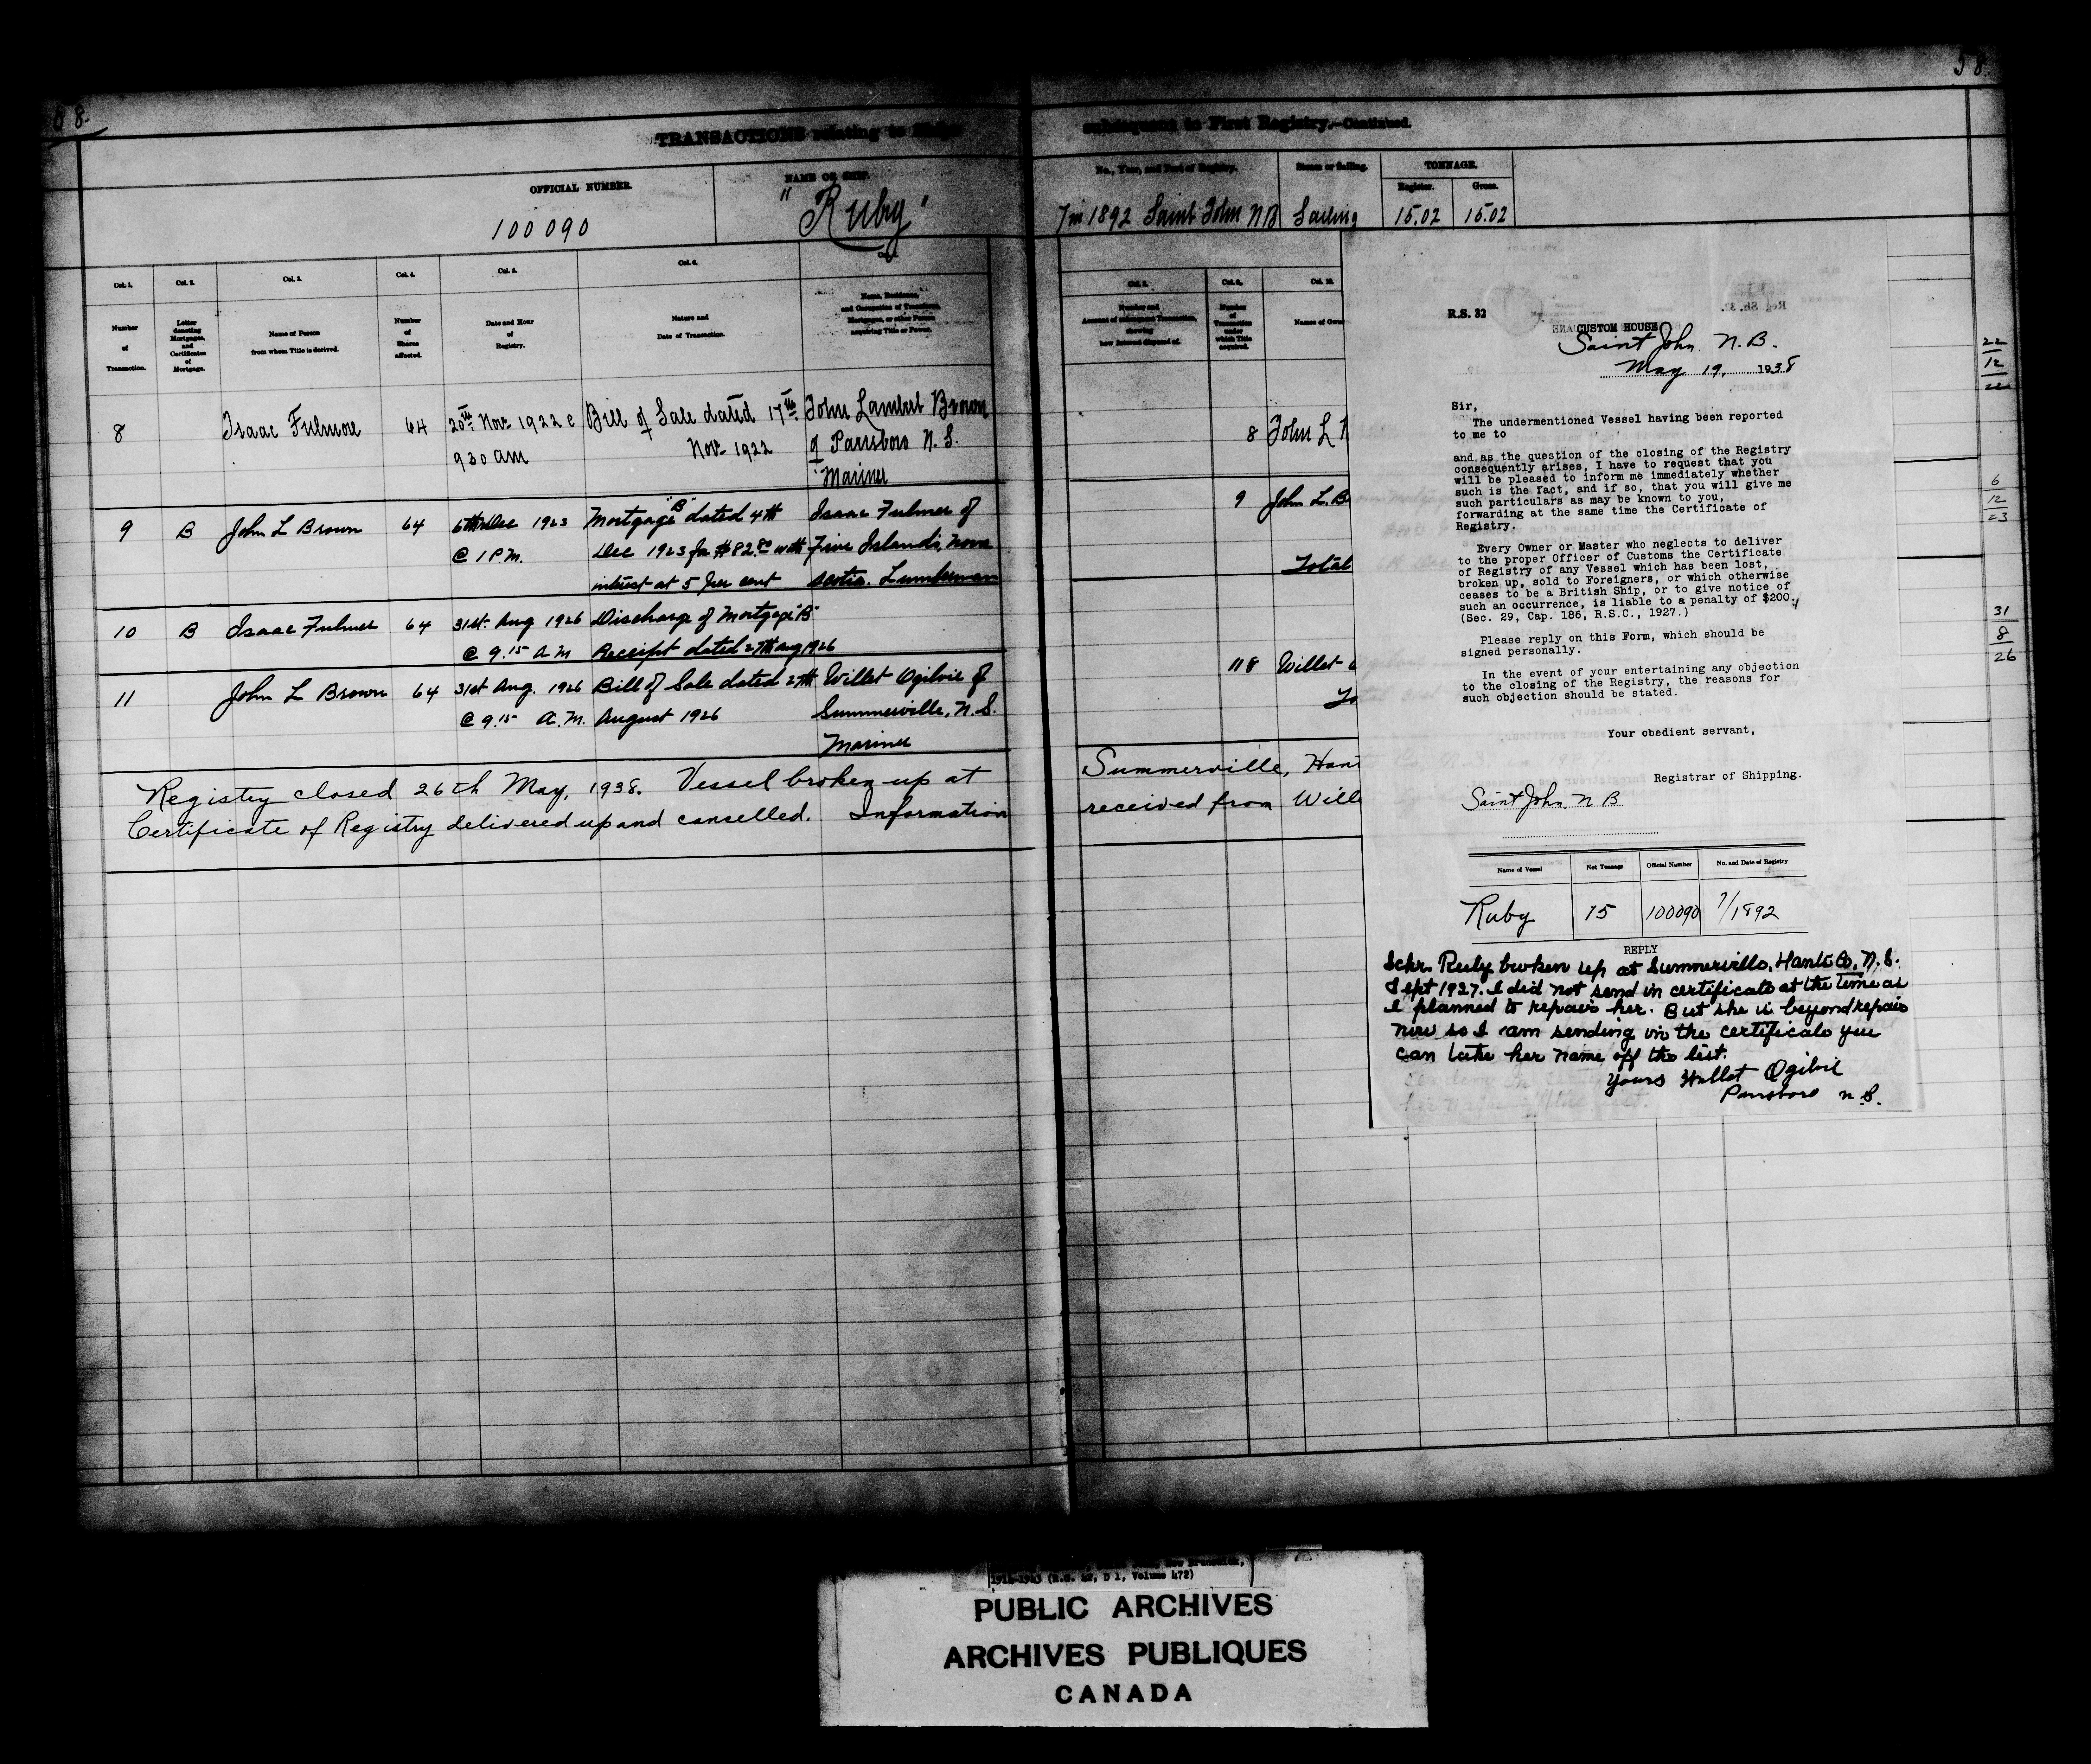 58.
58.
TRANSACTIONS relating to Ships
subsequent to First Registry.—Continued.
OFFICIAL NUMBER.
100090
NAME OF SHIP.
"Ruby"
No., Year, and Port of Registry.
7 in 1892 Saint John NB
Steam or Sailing.
Sailing
TONNAGE.
Register. Gross.
15.02 15.02
Col. 1. Col. 2. Col. 3. Col. 4. Col. 5. Col. 6. Col.
Number
of
Transaction.
Letter
denoting
Mortgages,
and
Certificates
of
Mortgage.
Name of Person
from whom Title is derived.
Number
of
Shares
affected.
Date and Hour
of
Registry.
Nature and
Date of Transaction.
Name, Residence,
and Occupation of Transferee,
Mortgagee, or other Person
acquiring Title or Power.
8 Isaac Fulmore 64 20th Nov 1922 @ Bill of Sale dated 17th John Lambert Brown
930 am Nov 1922 of Parrsboro N.S.
Mariner
9 B John L Brown 64 6th Dec 1923 Mortgage "B" dated 4th Isaac Fulmer of
@ 1 P.M. Dec 1923 for $82.00 with Five Islands, Nova
interest at 5 per cent Scotia. Lumberman
10 B Isaac Fulmer 64 31st. Aug 1926 Discharge of Mortgage "B"
@ 9.15 A M Receipt dated 27th aug 1926
11 John L Brown 64 31st Aug. 1926 Bill of Sale dated 27th Willet Ogilvie of
@ 9.15 A.M. August 1926 Summerville, N.S.
Mariner
Registry closed 26th May, 1938. Vessel broken up at
Certificate of Registry delivered up and cancelled. Information
Col. 8. Col. 9. Col. 10.
Number and
Amount of subsequent Transaction,
showing
how Interest disposed of.
Number
of
Transaction
under
which Title
acquired.
Names of Own
8 John L
9 John L. B
Total
11 8 Willet
To
Summerville, Han
received from Will
22
12
22
6
12
23
31
8
26
R.S. 32
CUSTOM HOUSE
Saint John. N.B.
May 19, 1938
Sir,
The undermentioned Vessel having been reported
to me to
and as the question of the closing of the Registry
consequently arises, I have to request that you
will be pleased to inform me immediately whether
such is the fact, and if so, that you will give me
such particulars as may be known to you,
forwarding at the same time the Certificate of
Registry.
Every Owner or Master who neglects to deliver
to the proper Officer of Customs the Certificate
of Registry of any Vessel which has been lost,
broken up, sold to Foreigners, or which otherwise
ceases to be a British Ship, or to give notice of
such an occurrence, is liable to a penalty of $200.
(Sec. 29, Cap. 186, R.S.C., 1927.)
Please reply on this Form, which should be
signed personally.
In the event of your entertaining any objection
to the closing of the Registry, the reasons for
such objection should be stated.
Your obedient servant,
Registrar of Shipping.
Saint John, N B
Name of Vessel Net Tonnage Official Number No. and Date of Registry
Ruby 15 100090 7/1892
REPLY
Schr. Ruby broken up at Summerville, Hants Co, N.S.
Sept 1927. I did not send in certificate at the time as
I planned to repair her. But she is beyond repair
now so I am sending in the certificate you
can take her name off the list.
Yours Willet Ogilvie
Parrsboro N.S.
(R.G. 42, D 1, Volume 472)
PUBLIC ARCHIVES
ARCHIVES PUBLIQUES
CANADA